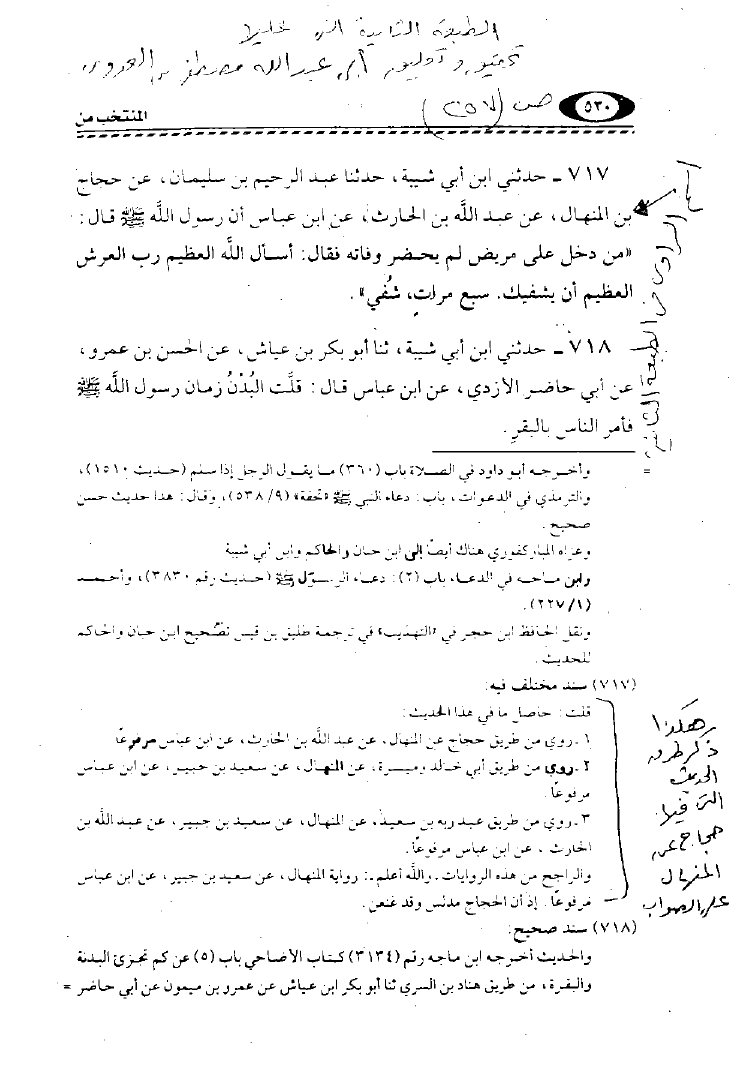 الطبعة الثانية التى
تحقيق و تعليق أبى عبد الله مصطفى بن العدوى
ص (٢٥٧)
٥٣٠
المنتخب من
٧١٧ ـ حدثني ابن أبي شيبة، حدثنا عبد الرحيم بن سليمان، عن حجاج
بن المنهال، عن عبد الله بن الحارث، عن ابن عباس أن رسول الله ﷺ قال:
«من دخل على مريض لم يحضر وفاته فقال: أسأل الله العظيم رب العرش
العظيم أن يشفيك. سبع مرات، شُفي».
٧١٨ ـ حدثني ابن أبي شيبة، ثنا أبو بكر بن عياش، عن الحسن بن عمرو،
عن أبي حاضر الأزدي، عن ابن عباس قال: قلَّت البُدْنُ زمان رسول الله ﷺ
فأمر الناس بالبقرِ.
الراوى من الطبعة الثانية
= وأخرجه أبو داود في الصلاة باب (٣٦٠) ما يقول الرجل إذا سلم (حديث ١٥١٠)،
والترمذي في الدعوات، باب: دعاء النبي ﷺ «تحفة» (٥٣٨/٩)، وقال: هذا حديث حسن
صحيح.
وعزاه المباركفوري هناك أيضًا إلى ابن حبان والحاكم وابن أبي شيبة
وابن ماجه في الدعاء، باب (٢): دعاء الرسول ﷺ (حديث رقم ٣٨٣٠)، وأحمد
(٢٢٧/١).
ونقل الحافظ ابن حجر في «التهذيب» في ترجمة طليق بن قيس تصحيح ابن حبان والحاكم
للحديث.
(٧١٧) سند مختلف فيه:
قلت: حاصل ما في هذا الحديث:
١ ـ روي من طريق حجاج عن المنهال، عن عبد الله بن الحارث، عن ابن عباس مرفوعًا
٢ ـ روي من طريق أبي خالد وميسرة، عن المنهال، عن سعيد بن جبير، عن ابن عباس
مرفوعًا.
٣ ـ روي من طريق عبد ربه بن سعيد، عن المنهال، عن سعيد بن جبير، عن عبد الله بن
الحارث، عن ابن عباس مرفوعًا.
والراجح من هذه الروايات ـ والله أعلم ـ: رواية المنهال، عن سعيد بن جبير، عن ابن عباس
مرفوعًا. إذ أن الحجاج مدلس وقد عنعن.
وهكذا
ذكر طرق
الحديث
التى فيها
حجاج عن
المنهال
على الصواب
(٧١٨) سند صحيح:
والحديث أخرجه ابن ماجه رقم (٣١٣٤) كتاب الأضاحي باب (٥) عن كم تجزئ البدنة
والبقرة، من طريق هناد بن السري ثنا أبو بكر ابن عياش عن عمرو بن ميمون عن أبي حاضر =